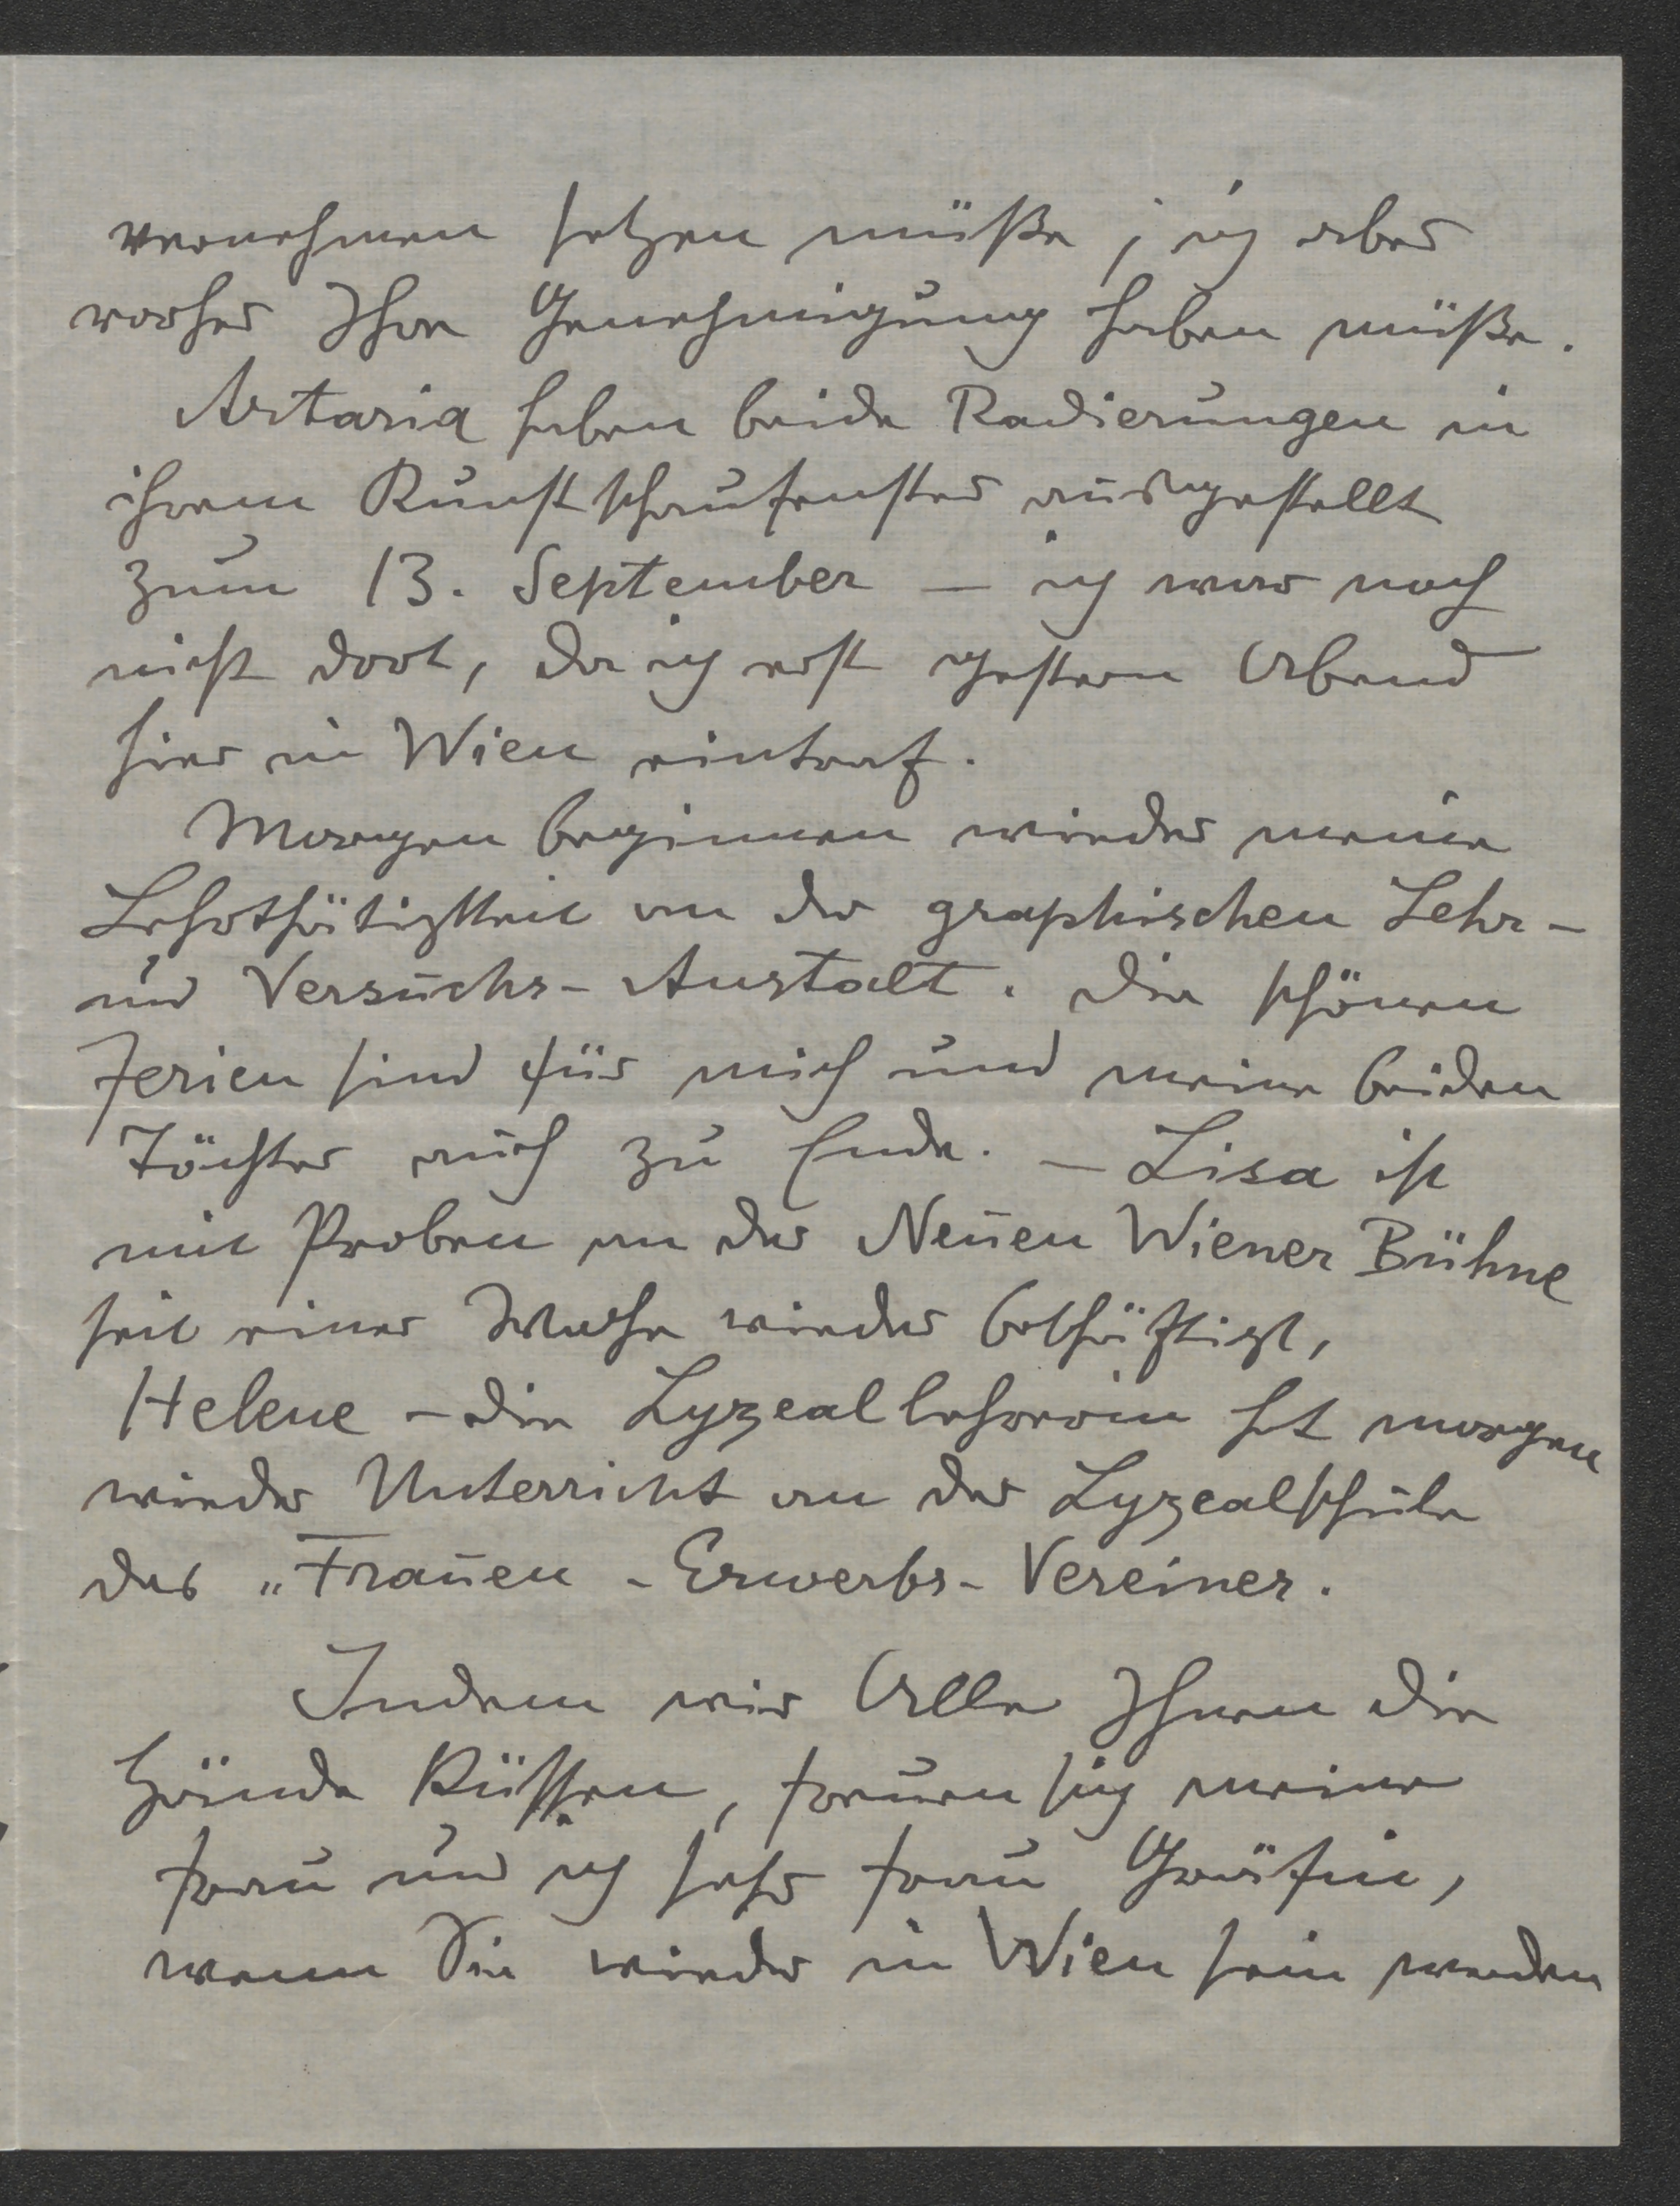 vernehmen setzen müße, ich aber
vorher Ihre Genehmigung haben müße.
Artaria haben beide Radierungen in
ihrem Kunstschaufenster ausgestellt
zum 13. September — ich war noch
nicht dort, da ich erst gestern Abend
hier in Wien eintraf.
Morgen beginnen wieder meine
Lehrthätigkeit an der graphischen Lehr-
und Versuchs-Anstalt. Die schönen
Ferien sind für mich und meine beiden
Töchter auch zu Ende. — Lisa ist
mit Proben an der Neuen Wiener Bühne
seit einer Woche wieder beschäftigt,
Helene – die Lyzeallehrerin hat morgen
wieder Unterricht an der Lyzealschule
des „Frauen-Erwerbs-Vereines.
Indem wir Alle Ihnen die
Hände küssen, freuen sich meine
Frau und ich sehr Frau Gräfin,
wenn Sie wieder in Wien sein werden